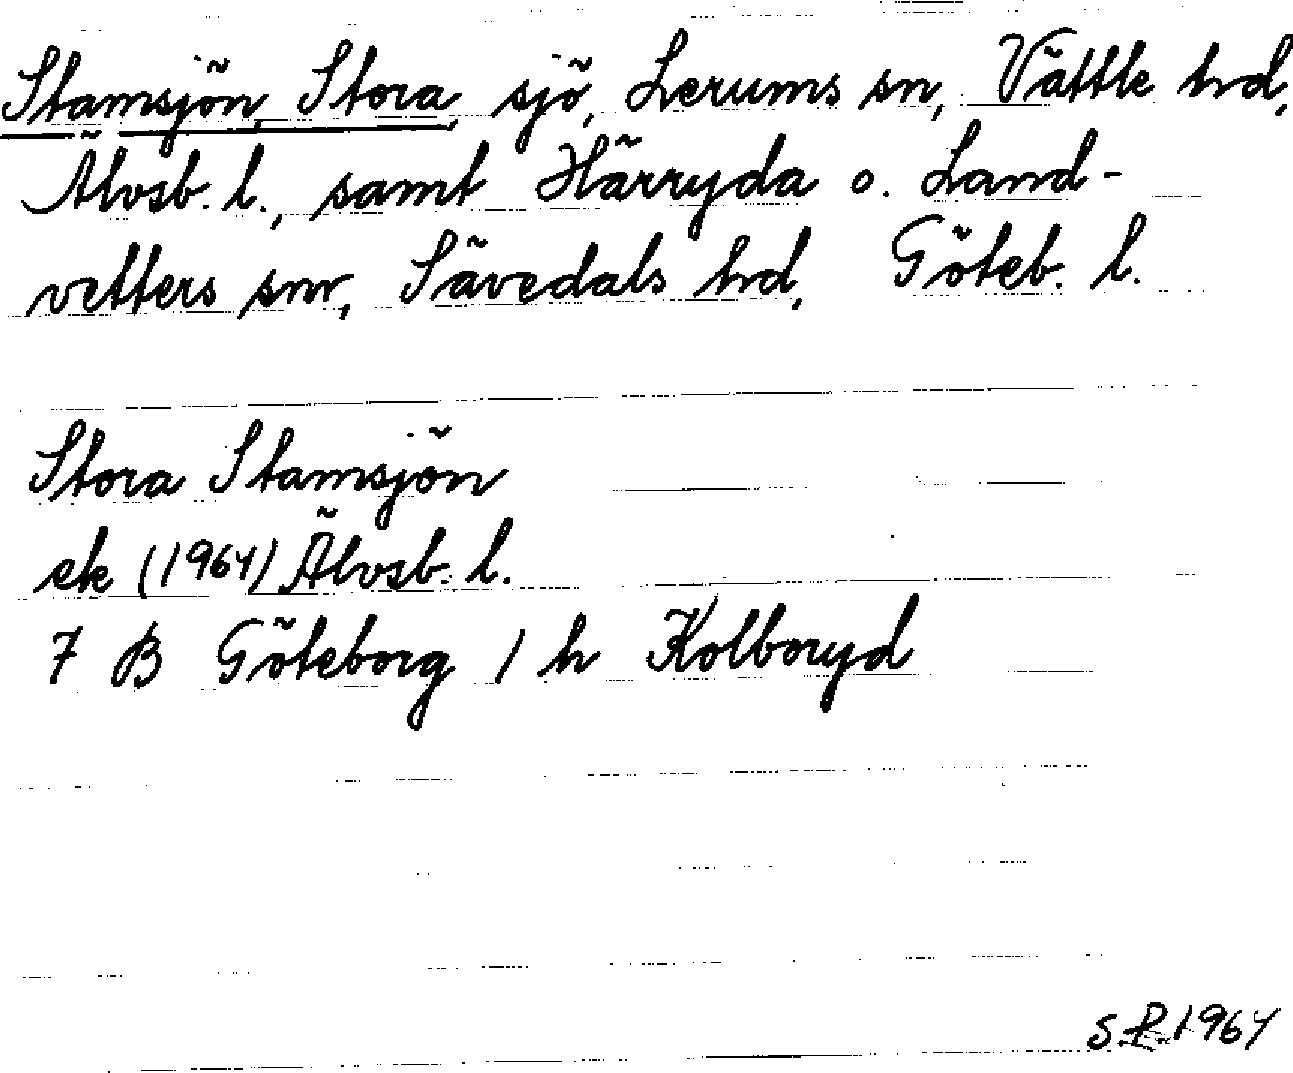 Stamsjön, Stora, sjö, Lerums sn, Vättle hd,
Älvsb. l., samt Härryda o. Land-
vetters snr, Sävedals hd, Göteb. l.
Stora Stamsjön
ek (1964) Älvsb. l.
7 B Göteborg 1 h Kolboryd
S.P. 1964